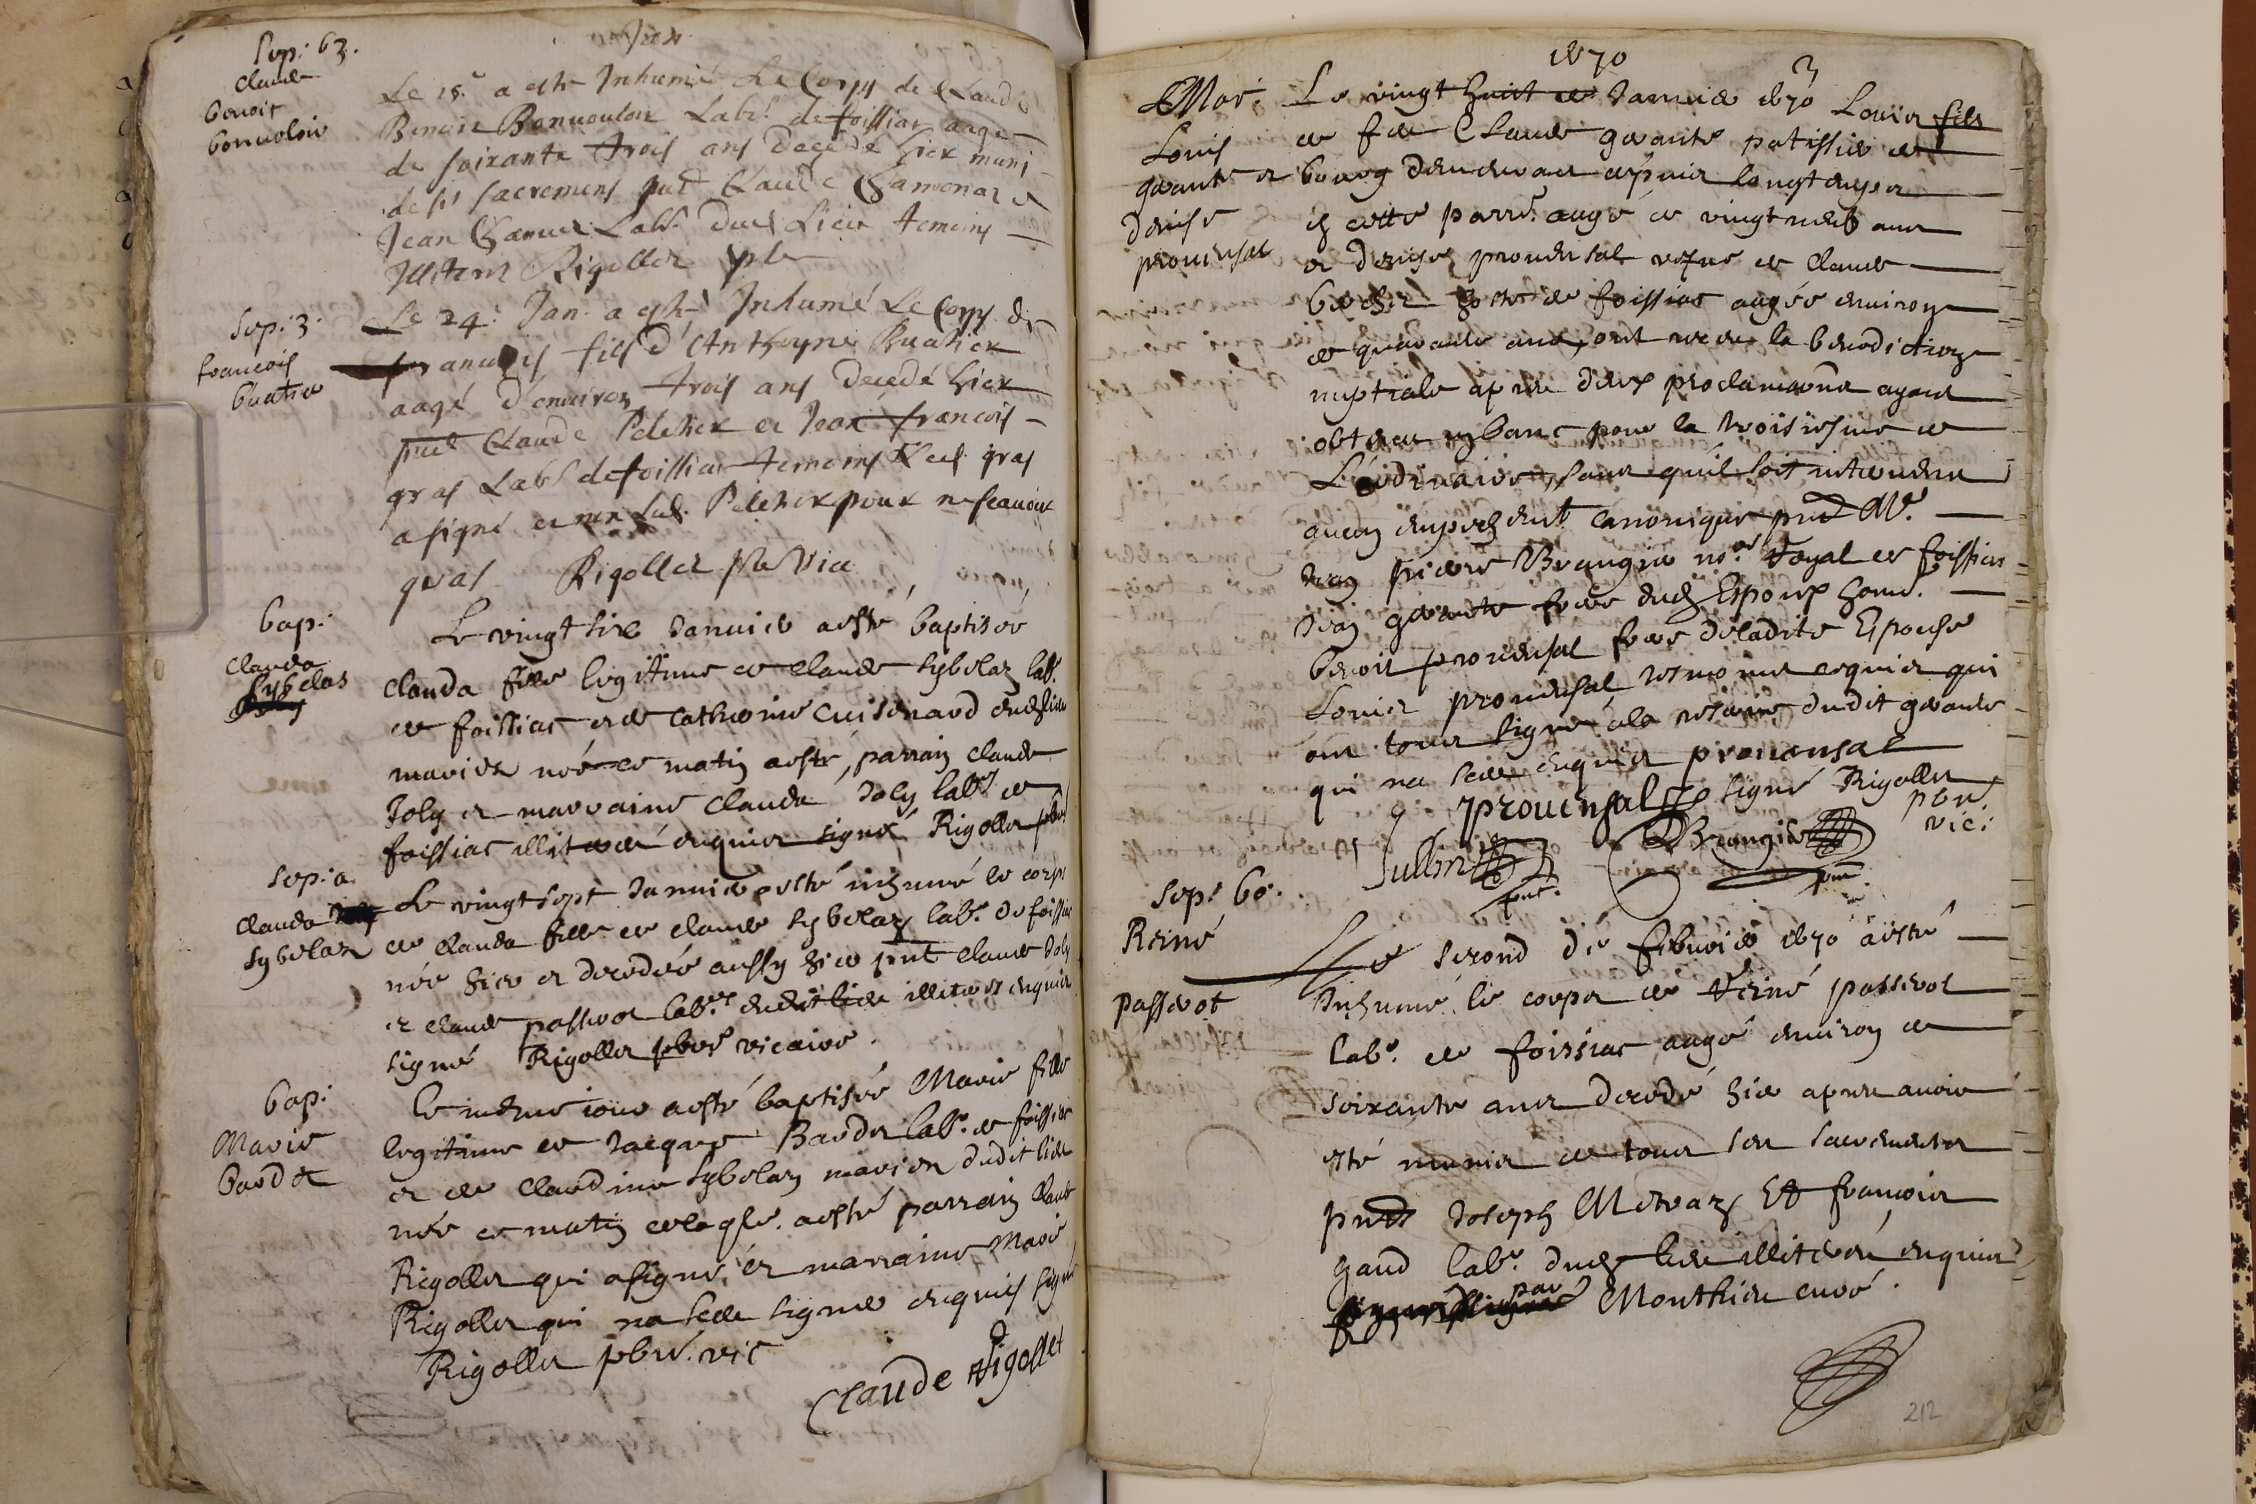 Sep: 63.
claude
benoit
bonuoloir
Le 15.e a esté Inhumé Le Corps de Claude
Benoit Bonuouloir Labr. de foissiac aagé
de soixante trois ans decedé hier muni
de ss sacremens pnt Claude Chamonaz &
Jean Labr. dud Lieu temoins
Illiteres Rigollet pbr
Sep: 3.
francois
buatier
Le 24.e Jan. a esté Inhumé Le Corps de
francois fils d'Anthoyne Buatier
aagé d'enuiron trois ans decedé hier
pnt Claude Peletier et Jean francois
gras Labrs de foissiac temoins Led. gras
a signé et non Led. Peletier pour ne scauoir
gras Rigollet pbr Vic
bap:
clauda
sybelas
Le vingt six Januier a esté baptisée
clauda fille legitime de claude sybelas labr.
de foissiac et de catherine Cuisenard dud lieu
mariez née ce matin a esté parrain claude
Joly et marraine clauda Joly labrs de
foissiac illiterés enquis signé Rigollet pbre
Sep: a.
clauda
sybelas
Le vingt sept Januier a esté inhumé le corps
de clauda fille de claude sybelas labr. de foissiac
née hier et decedée aussy hier pnt claude Joly
et claude passerot labrs dudit lieu illiterés enquis
signé Rigollet pbre vicaire.
bap:
Marie
bardet
Le mesme iour a esté baptisée Marie fille
legitime de Jacques Bardet labr. de foissiac
et de Claudine sybelas mariez dudit lieu
née ce matin a esté parrain Claude
Rigollet qui a signé, et marraine Marie
Rigollet qui na sceu signer enquis signé
Rigollet pbre. vic
Claude Rigollet
1670
Mar:
Louis
gerante et
denise
prouensal
Le vingt huit de Januier 1670 Louis fils
de feu Claude gerante patissier de
bourg demeurant depuis longtemps
en cette parre. aagé de vingt neuf ans
et denise prouensal vefue de claude
hoste de foissiac aagée enuiron
de quarante ans, ont receu la benediction
nuptiale apres deux proclamaons ayant
obtenu pour la troisiesme de
L'ordinaire, sans quil soit interuenu
aucun empeschement canonique pnt Me.
Jean pierre Brangier nore. Royal de foissiac
Jean gerante frere dud Espoux hond.
benoit prouensal frere de ladite Espouse
Louis prouensal tesmoins requis qui
ont tous signé a la reserue dudit gerante
qui na sceu enquis prouensal
prouensal signé Rigollet
pbre
vic:
Jullin
pnt.
Brangier
pnt
Sep: 60.
Reiné
passerot
Le second de feburier 1670 a esté
Inhumé le corps de Reiné passerot
labr. de foissiac aagé enuiron de
soixante ans decedé hier apres auoir
esté munis de tous les sacrements
pnts Joseph Moiraz Et francois
gaud labr. dud lieu illiterés enquis
par Monthieu curé.
212